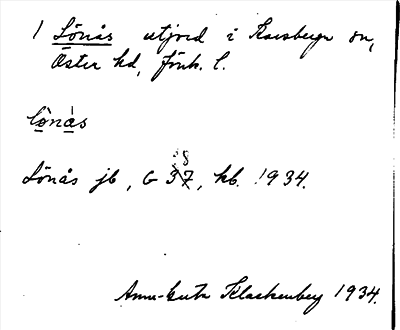 1 Lönås utjord i Karsberga sn,
Öster hd, Jönk. l.
lònás
Lönås jb, G 37, kb. 1934.
8
Klackenberg 1934.